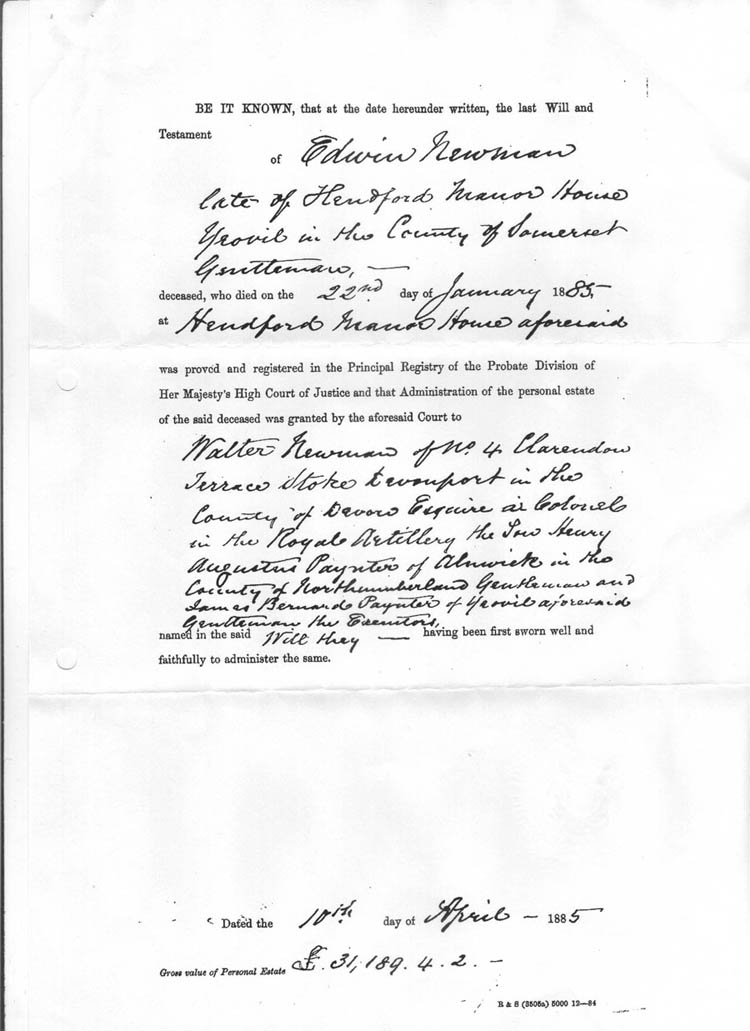 BE IT KNOWN, that at the date hereunder written, the last Will and
Testament
of Edwin Newman
late of Hendford Manor House
Yeovil in the County of Somerset
Gentleman, —
deceased, who died on the 22nd day of January 1885
at Hendford Manor House aforesaid
was proved and registered in the Principal Registry of the Probate Division of
Her Majesty's High Court of Justice and that Administration of the personal estate
of the said deceased was granted by the aforesaid Court to
Walter Newman of No. 4 Clarendon
Terrace Stoke Devonport in the
County of Devon Esquire a Colonel
in the Royal Artillery the Son Henry
Augustus Paynter of Alnwick in the
County of Northumberland Gentleman and
James Bernard Paynter of Yeovil aforesaid
Gentleman the Executors,
named in the said Will they — having been first sworn well and
faithfully to administer the same.
Dated the 10th day of April — 1885
Gross value of Personal Estate £. 31,189. 4. 2. —
R & S (3505a) 5000 12—84